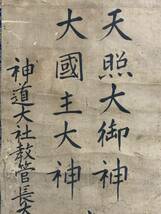 天照大御神
大國主大神
神道大社教管長